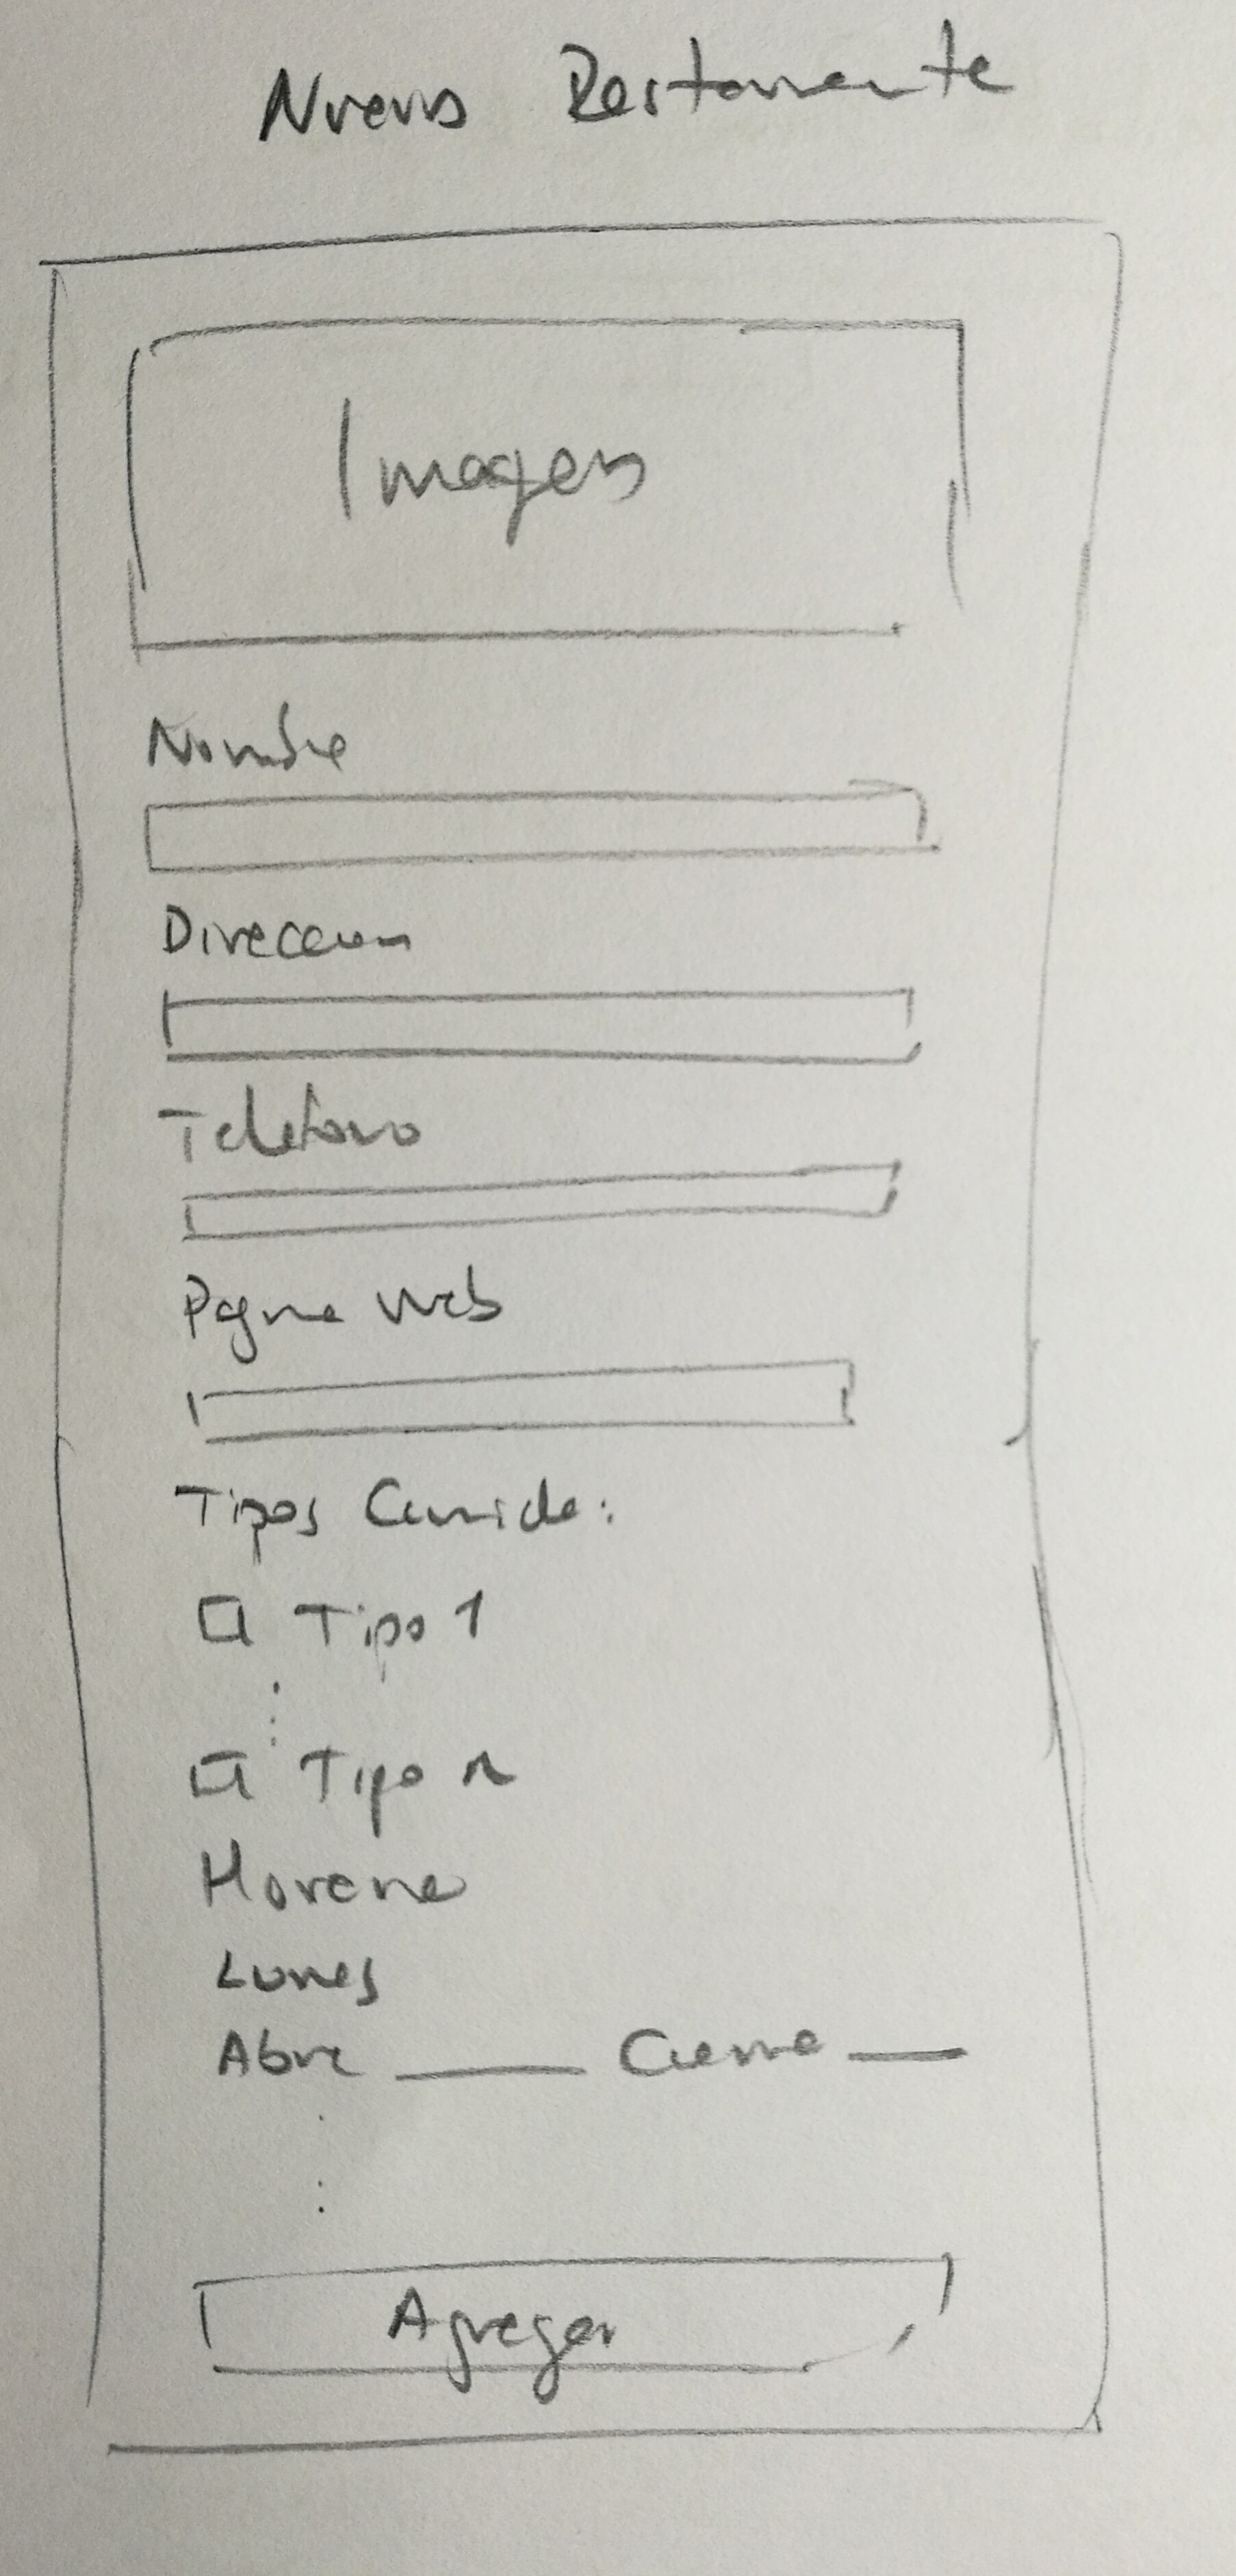 Nuevo Restaurante
Imagen
Nombre
Direccion
Telefono
Pagina Web
Tipos Comida:
Tipo 1
Tipo n
Horario
Lunes
Abre ____ Cierra ___
Agregar